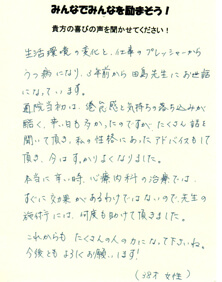 みんなでみんなを励まそう！
貴方の喜びの声を聞かせてください！
生活環境の変化と、仕事のプレッシャーから
うつ病になり、3年前から田島先生にお世話
になっています。
通院当初は、倦怠感と気持ちの落ち込みが
酷く、辛い日も多かったのですが たくさん話を
聞いて頂き、私の性格にあった アドバイスもして
頂き、今はすっかりよくなりました。
本当に辛い時、心療内科の治療では、
すぐに効果があるわけではないので、先生の
施術には、何度も助けて頂きました。
これからも たくさんの人の力になって下さいね。
今後とも よろしくお願いします！
（38才 女性）